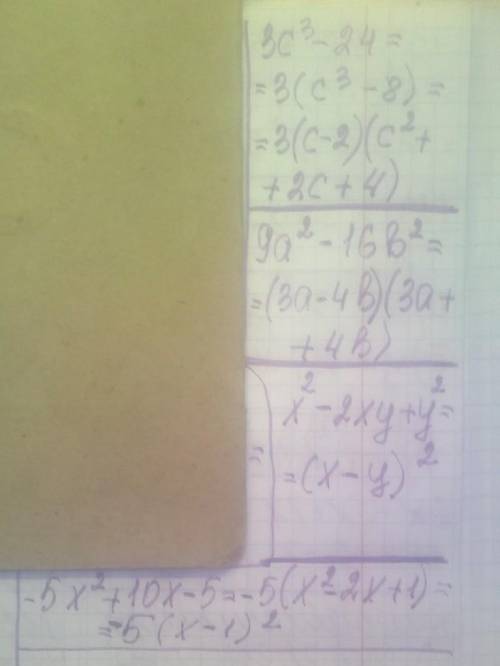 3c³-24=
=3(c³-8)=
=3(c-2)(c²+
+2c+4)
9a²-16b²=
=(3a-4b)(3a+
+4b)
x²-2xy+y²=
=(x-y)²
=
-5x²+10x-5=-5(x²-2x+1)=
=-5(x-1)²